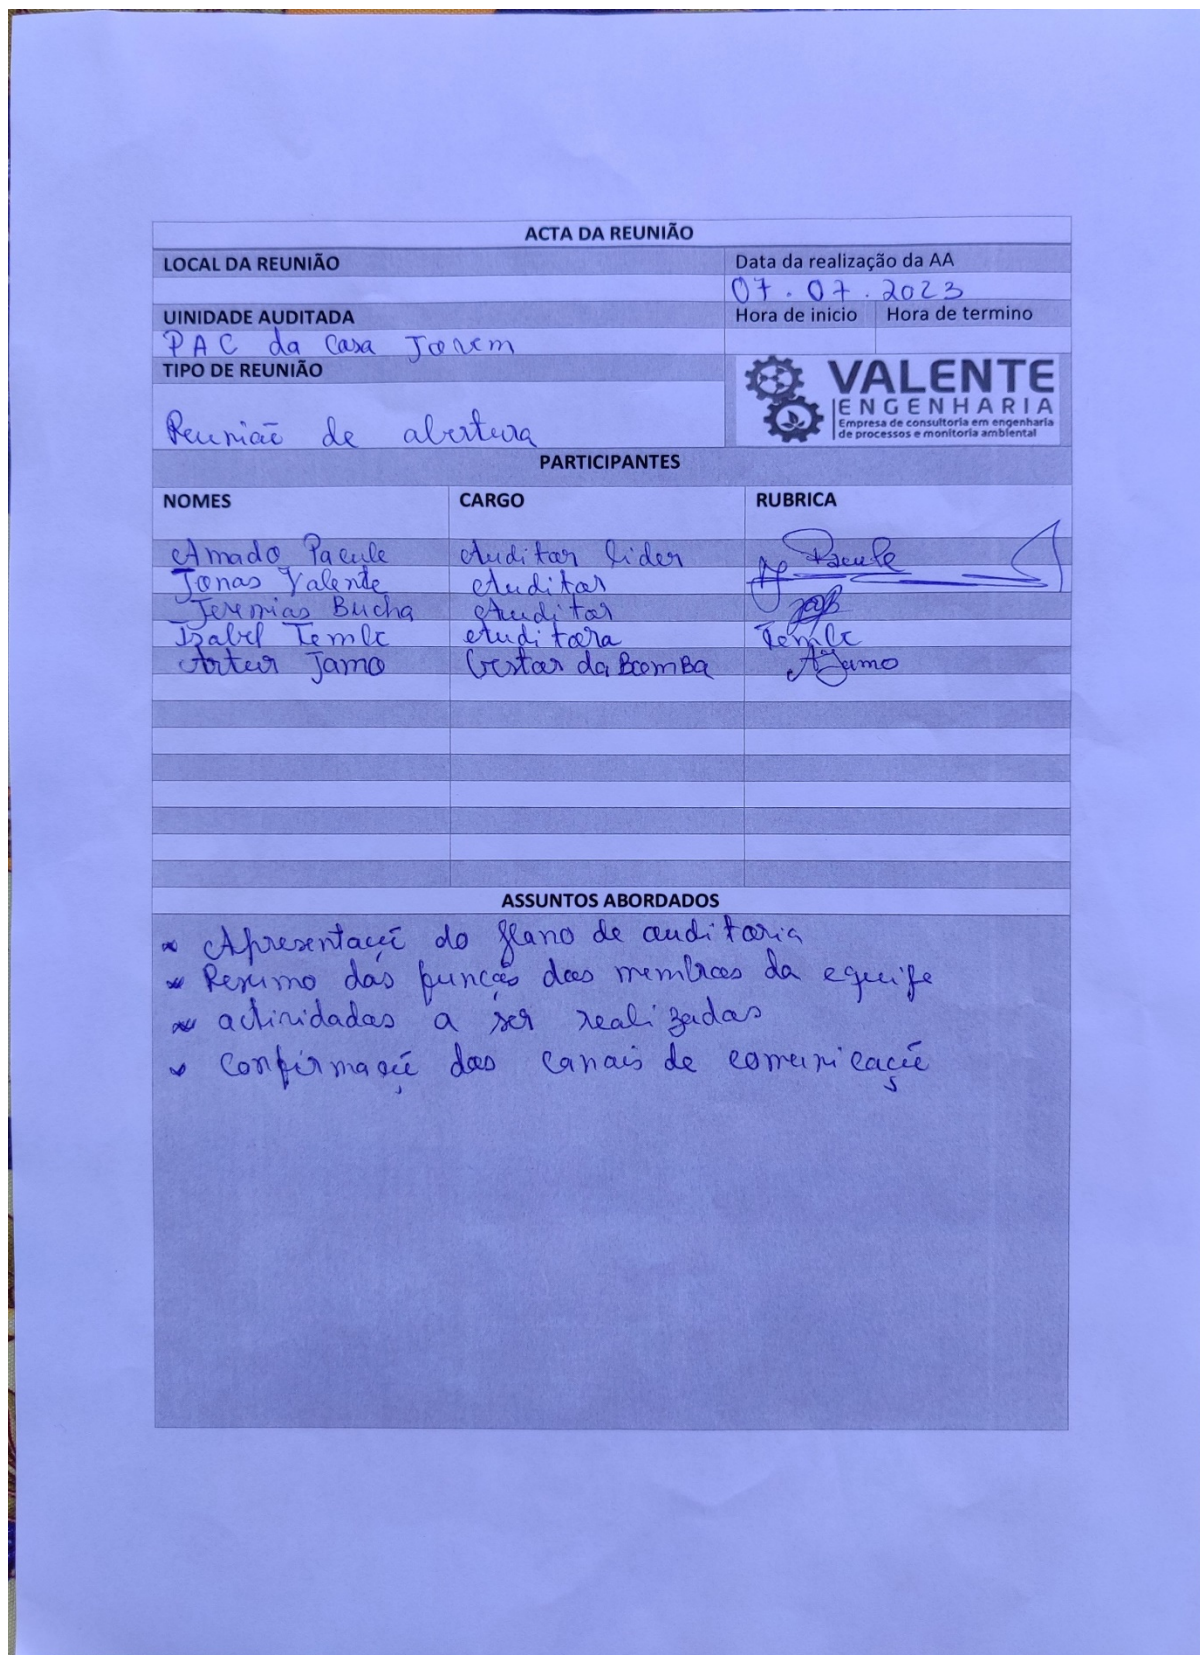 ACTA DA REUNIÃO
LOCAL DA REUNIÃO
Data da realização da AA
07.07.2023
UINIDADE AUDITADA
Hora de inicio Hora de termino
PAC da Casa Jovem
TIPO DE REUNIÃO
Reunião de abertura
VALENTE
ENGENHARIA
Empresa de consultoria em engenharia
de processos e monitoria ambiental
PARTICIPANTES
NOMES CARGO RUBRICA
Amado Pacule Auditor lider Pacule
Jonas Valente Auditor
Jeremias Bucha Auditor
Izabel Temle Auditora Temle
Artur Jamo Gestor da BomBa AJamo
ASSUNTOS ABORDADOS
* Apresentação do plano de auditoria
* Resumo das funções dos membros da equipe
* actividadas a ser realizadas
* Confirmação dos canais de comunicação